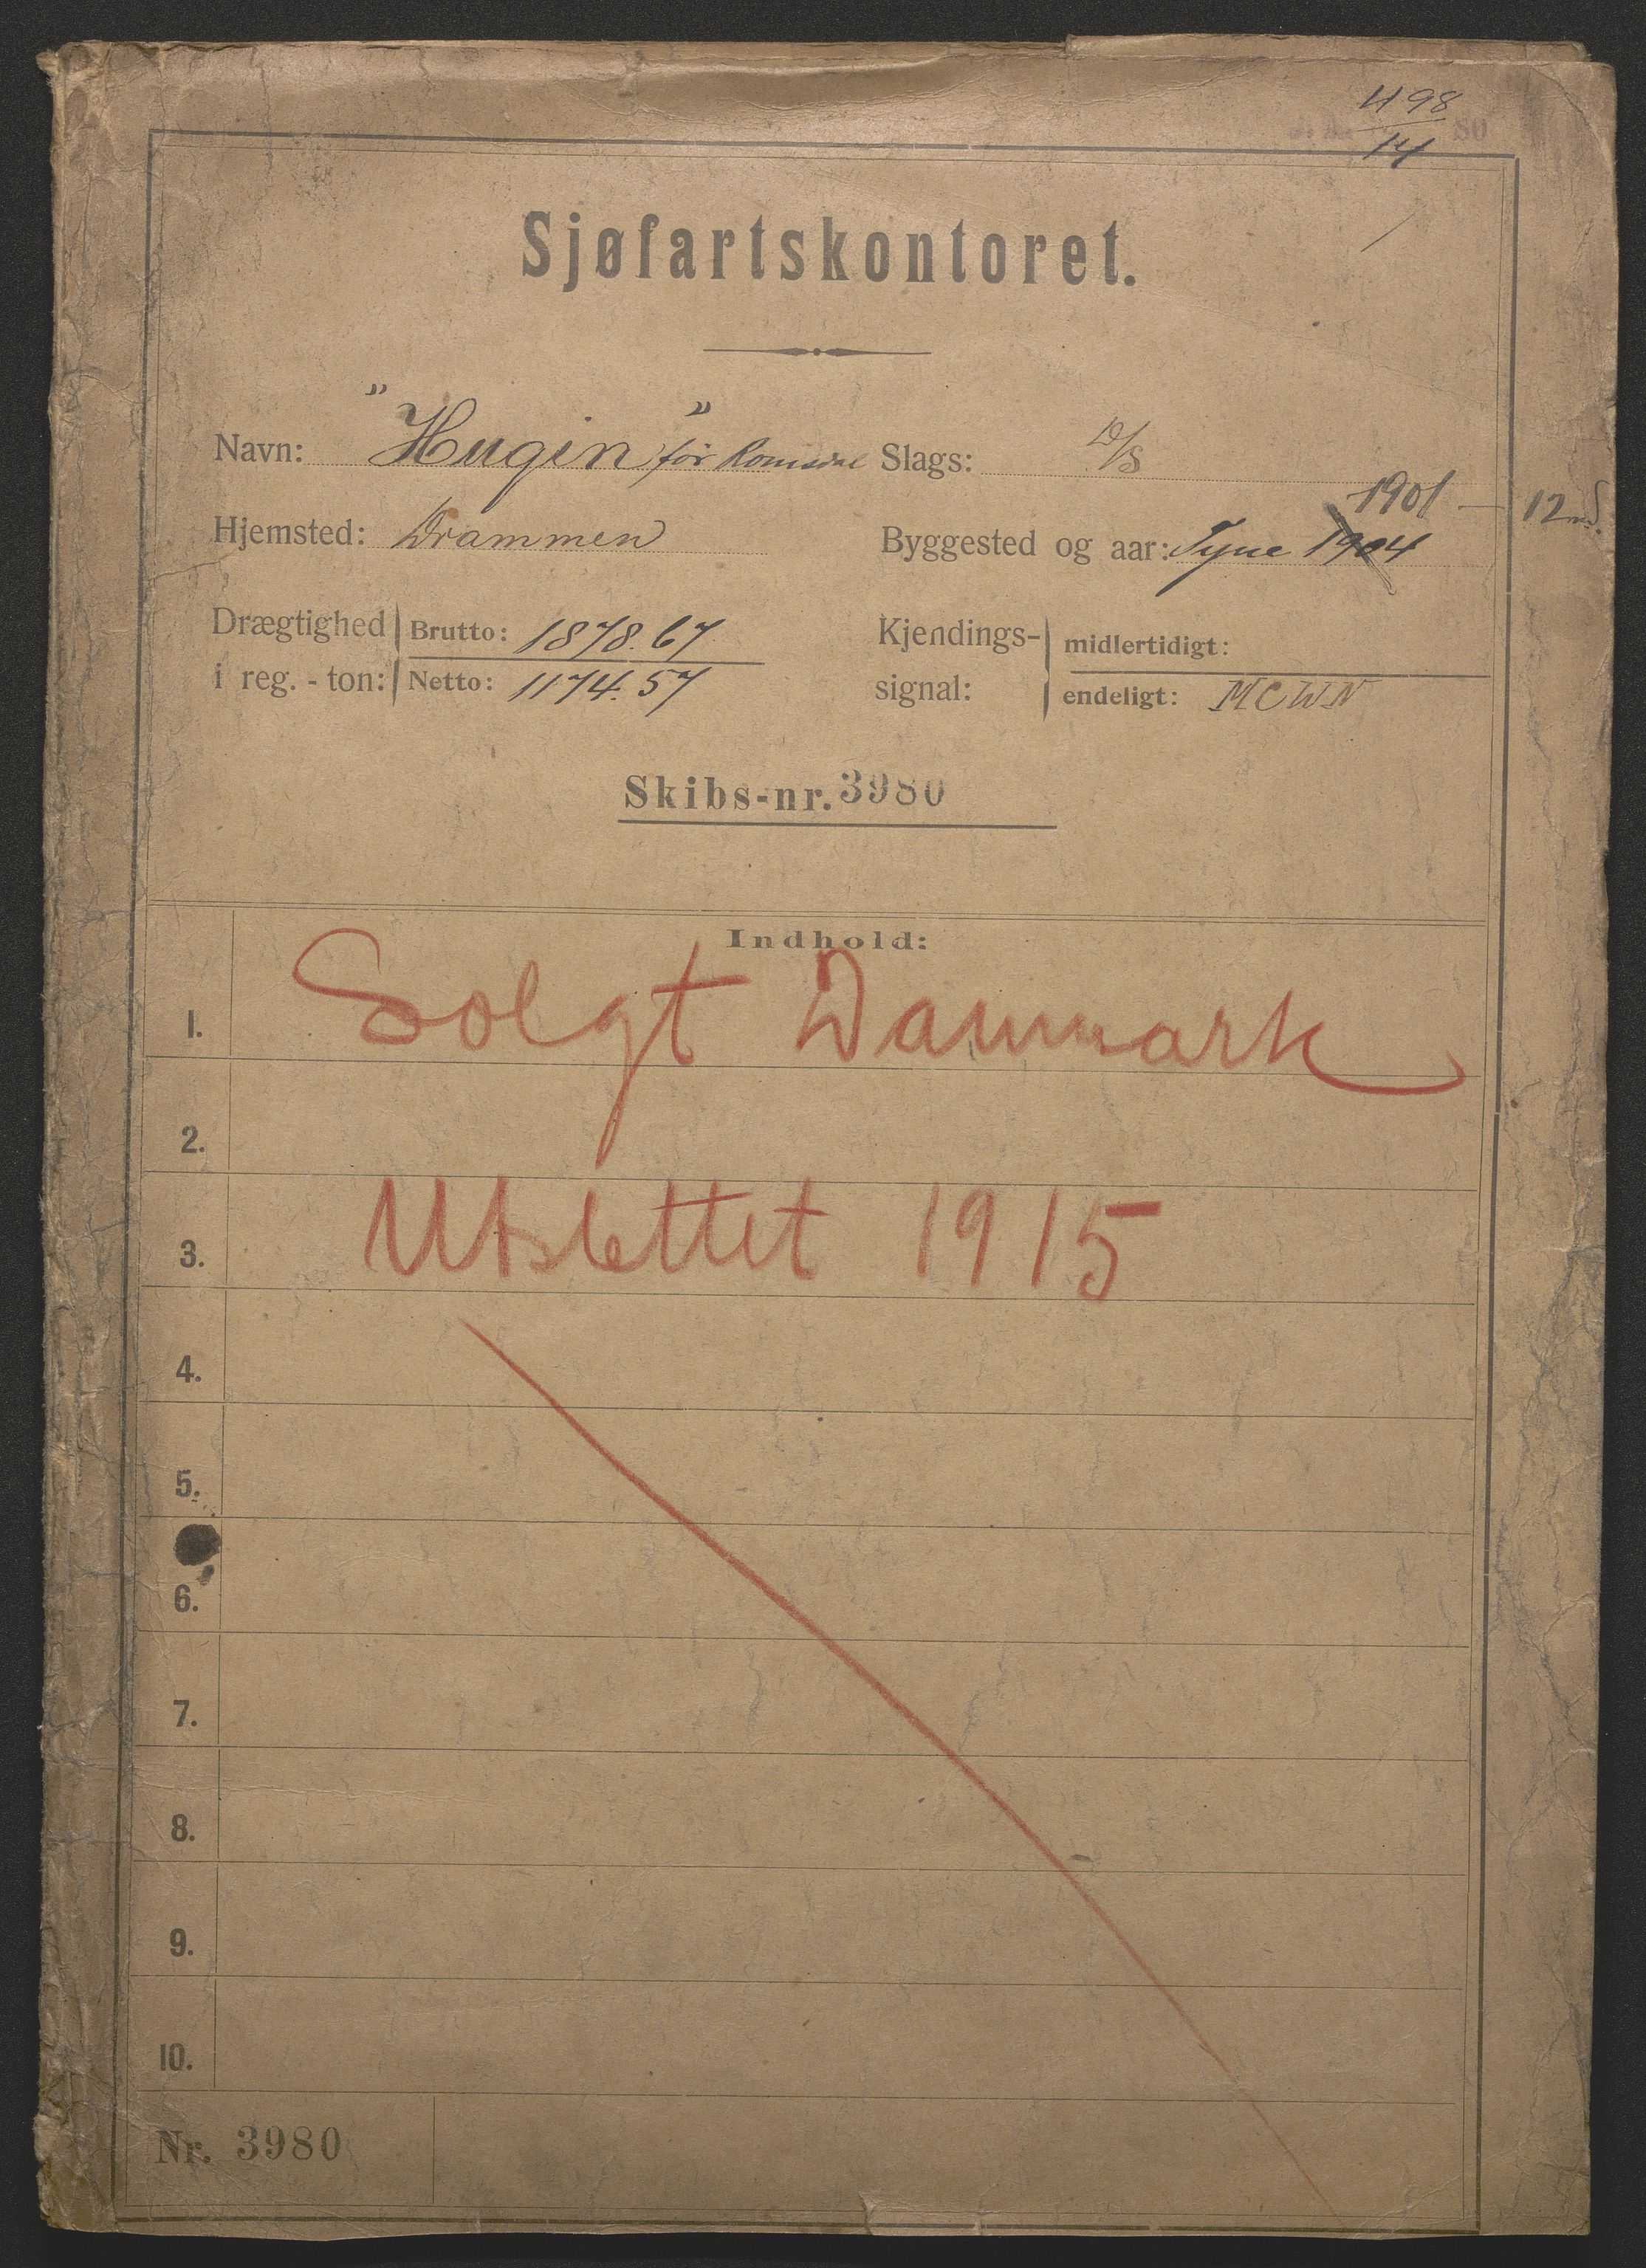 4198
14
Sjøfartskontoret.
Navn: "Hugin" før Romsdal
Slags: D/S
Hjemsted: Drammen
1901 - 12
Byggested og aar: Tyne 1904
Drægtighed i reg.-ton: Brutto: 1878.67
Netto: 1174.57
Kjendings-signal: midlertidigt:
endeligt: MCWN
Skibs-nr. 3980
Indhold:
1. Solgt Danmark
2.
3. Utslettet 1915
4.
5.
6.
7.
8.
9.
10.
Nr. 3980